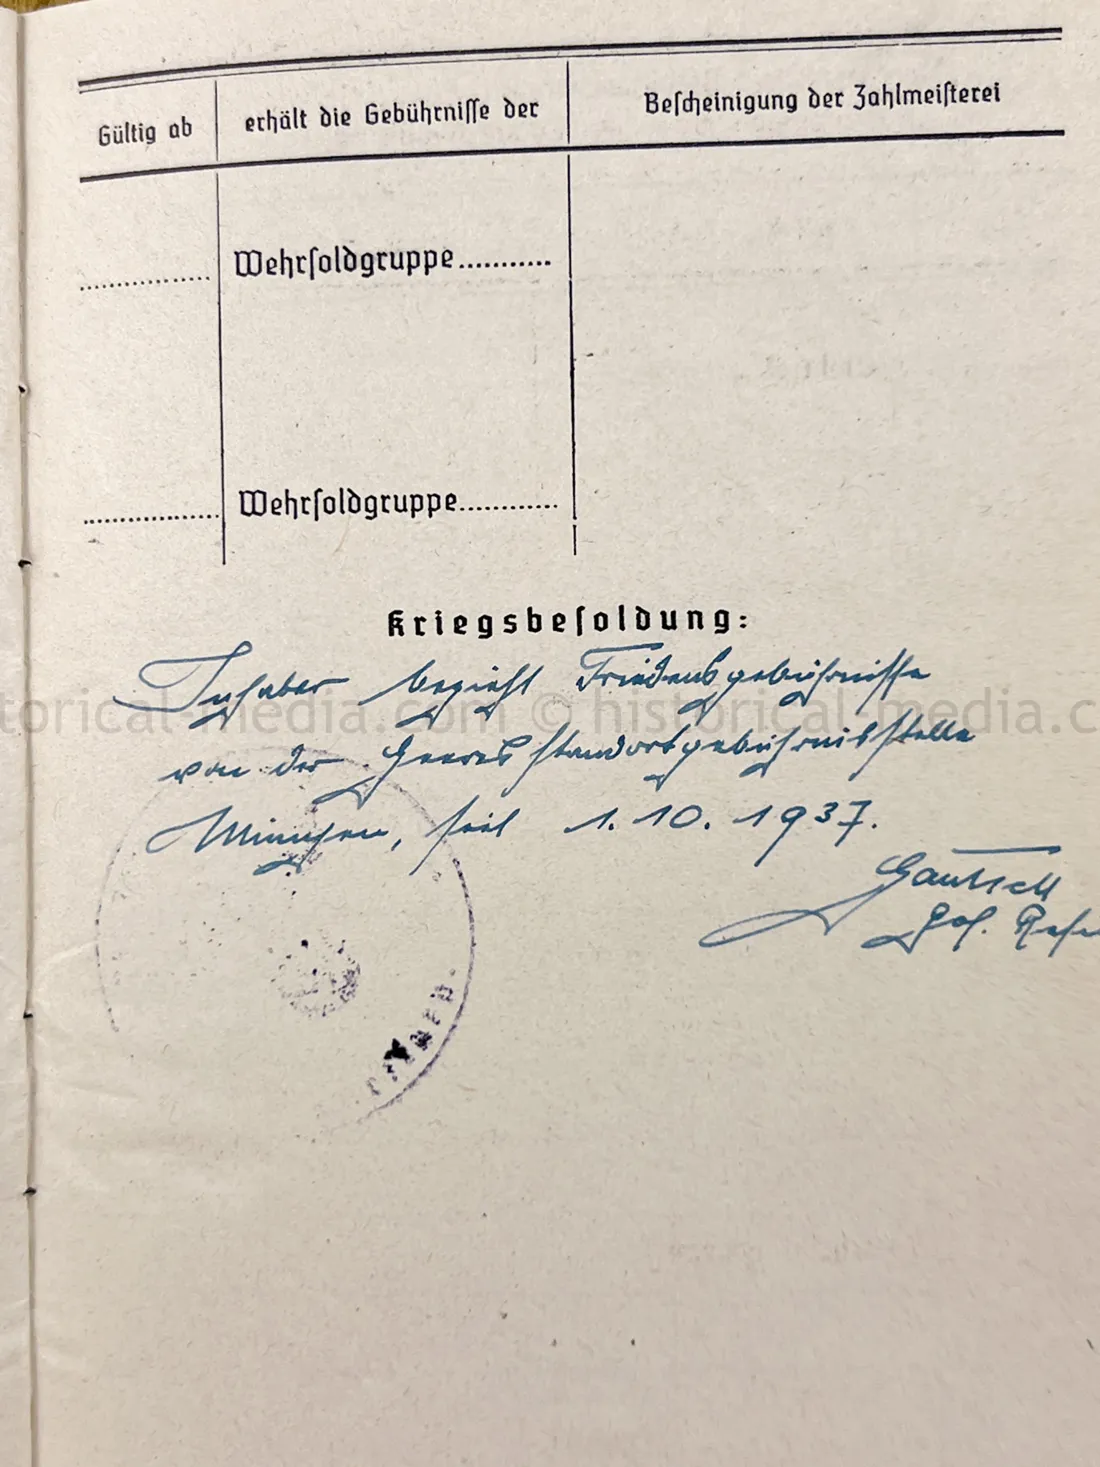 Gültig ab
erhält die Gebührnisse der
Bescheinigung der Zahlmeisterei
Wehrsoldgruppe...........
Wehrsoldgruppe............
Kriegsbesoldung:
Inhaber bezieht Friedensgebührnisse
historical-media.com © historical-media.c
von der Heeresstandortgebührnisstelle
München, seit 1.10.1937.